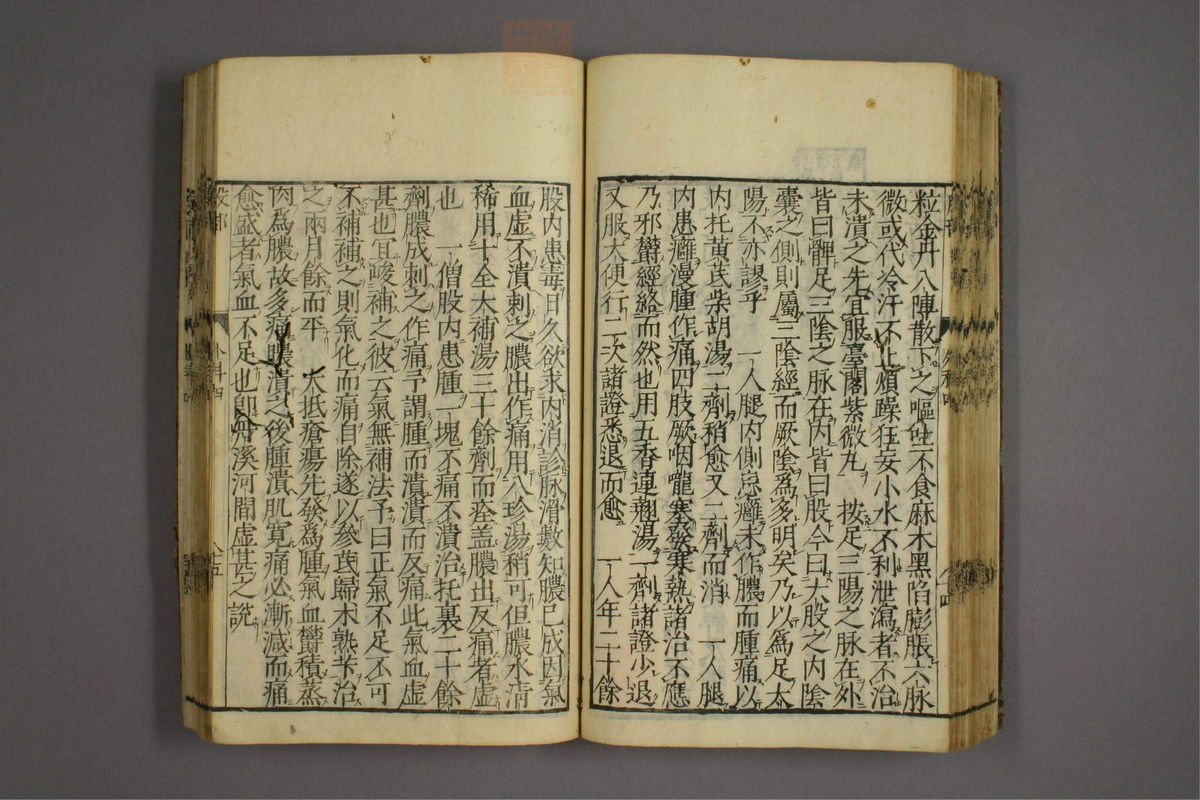 粒金丹八陣散下之嘔吐不食麻木黑陷膨脹六脉
微或代冷汗不止煩躁狂妄小水不利泄瀉者不治
未潰之先宜服臺閣紫微丸　按足三陽之脉在外
皆曰髀足三陰之脉在内皆曰股今曰大股之内陰
囊之側則屬三陰經而厥陰為多明矣乃以為足太
陽不亦謬乎　一人腿内側患癰未作膿而腫痛以
内托黄芪柴胡湯二劑稍愈又二劑而消　一人腿
内患癰漫腫作痛四肢厥咽嚨塞發寒熱諸治不應
乃邪欝經絡而然也用五香連翹湯一劑諸證少退
又服大便行二次諸證悉退而愈　一人年二十餘
股内患毒日久欲求内消診脉滑數知膿已成因氣
血虚不潰刺之膿出作痛用八珍湯稍可但膿水清
稀用十全大補湯三十餘劑而痊盖膿出反痛者虚
也　一僧股内患腫一塊不痛不潰治托裏二十餘
劑膿成刺之作痛予謂腫而潰潰而反痛此氣血虚
甚也宜峻補之彼云氣無補法予曰正氣不足不可
不補補之則氣化而痛自除遂以參芪歸术熟芐治
之兩月餘而平　大抵瘡瘍先發為腫氣血欝積蒸
肉為膿故多痛膿潰之後腫潰肌寛痛必漸減而痛
愈盛者氣血不足也即丹溪河間虚甚之說
股部　外科四　八五